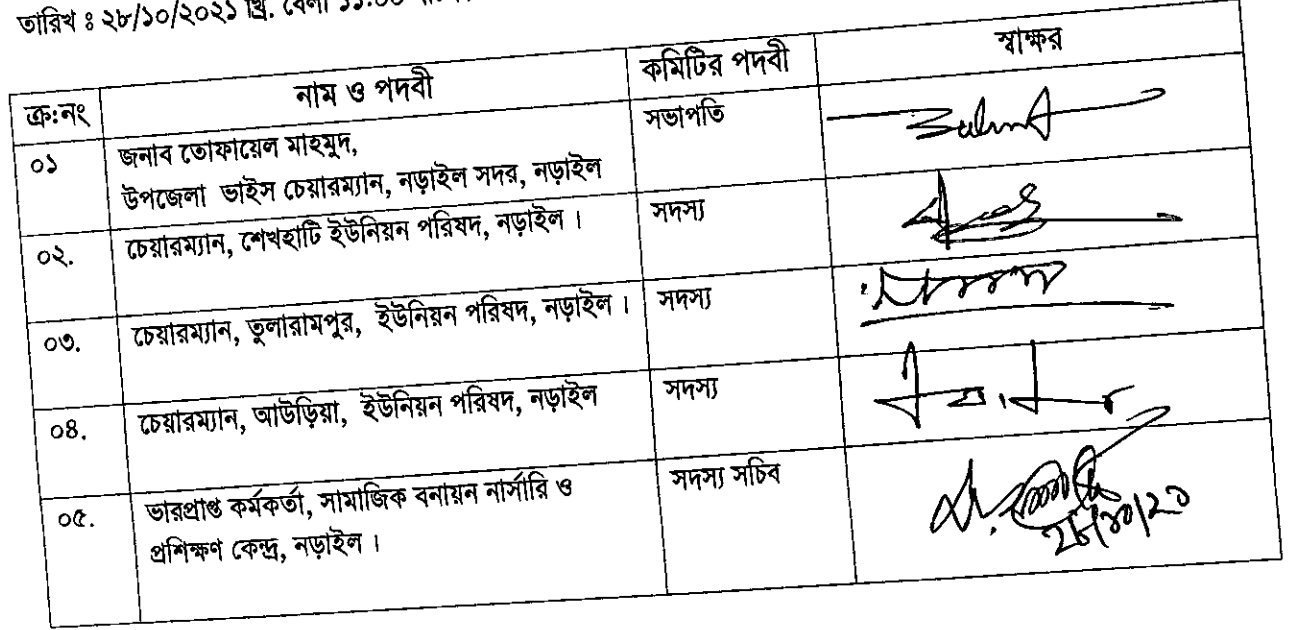 তারিখ ঃ ২৮/১০/২০২১ খ্রি. বেলা
ক্র:নং নাম ও পদবী কমিটির পদবী স্বাক্ষর
০১ জনাব তোফায়েল মাহমুদ, সভাপতি
উপজেলা ভাইস চেয়ারম্যান, নড়াইল সদর, নড়াইল
০২. চেয়ারম্যান, শেখহাটি ইউনিয়ন পরিষদ, নড়াইল । সদস্য
০৩. চেয়ারম্যান, তুলারামপুর, ইউনিয়ন পরিষদ, নড়াইল । সদস্য
০৪. চেয়ারম্যান, আউড়িয়া, ইউনিয়ন পরিষদ, নড়াইল সদস্য
০৫. ভারপ্রাপ্ত কর্মকর্তা, সামাজিক বনায়ন নার্সারি ও সদস্য সচিব
প্রশিক্ষণ কেন্দ্র, নড়াইল ।